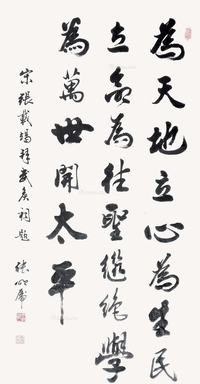 為天地立心為生民
立命為往聖繼絕學
為萬世開太平
宋張載場拜武侯祠題